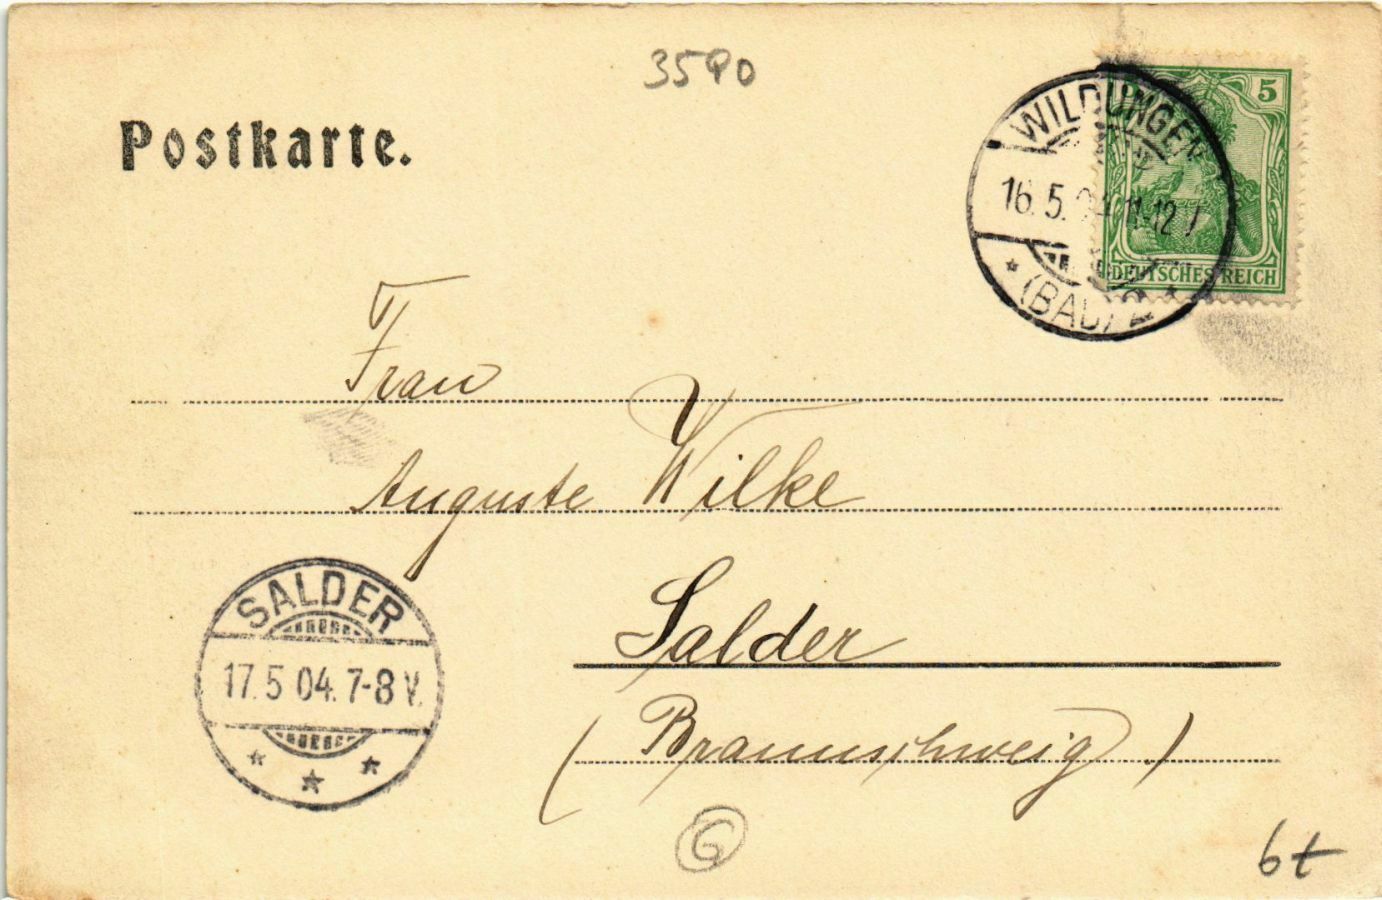 3590
Postkarte.
5
WILDUNGEN
16.5.04.11-12 V
* (BAD) 2 *
DEUTSCHES REICH
Frau
Auguste Wilke
Salder
(Braunschweig)
SALDER
17.5 04. 7-8 V.
* * *
G
6t